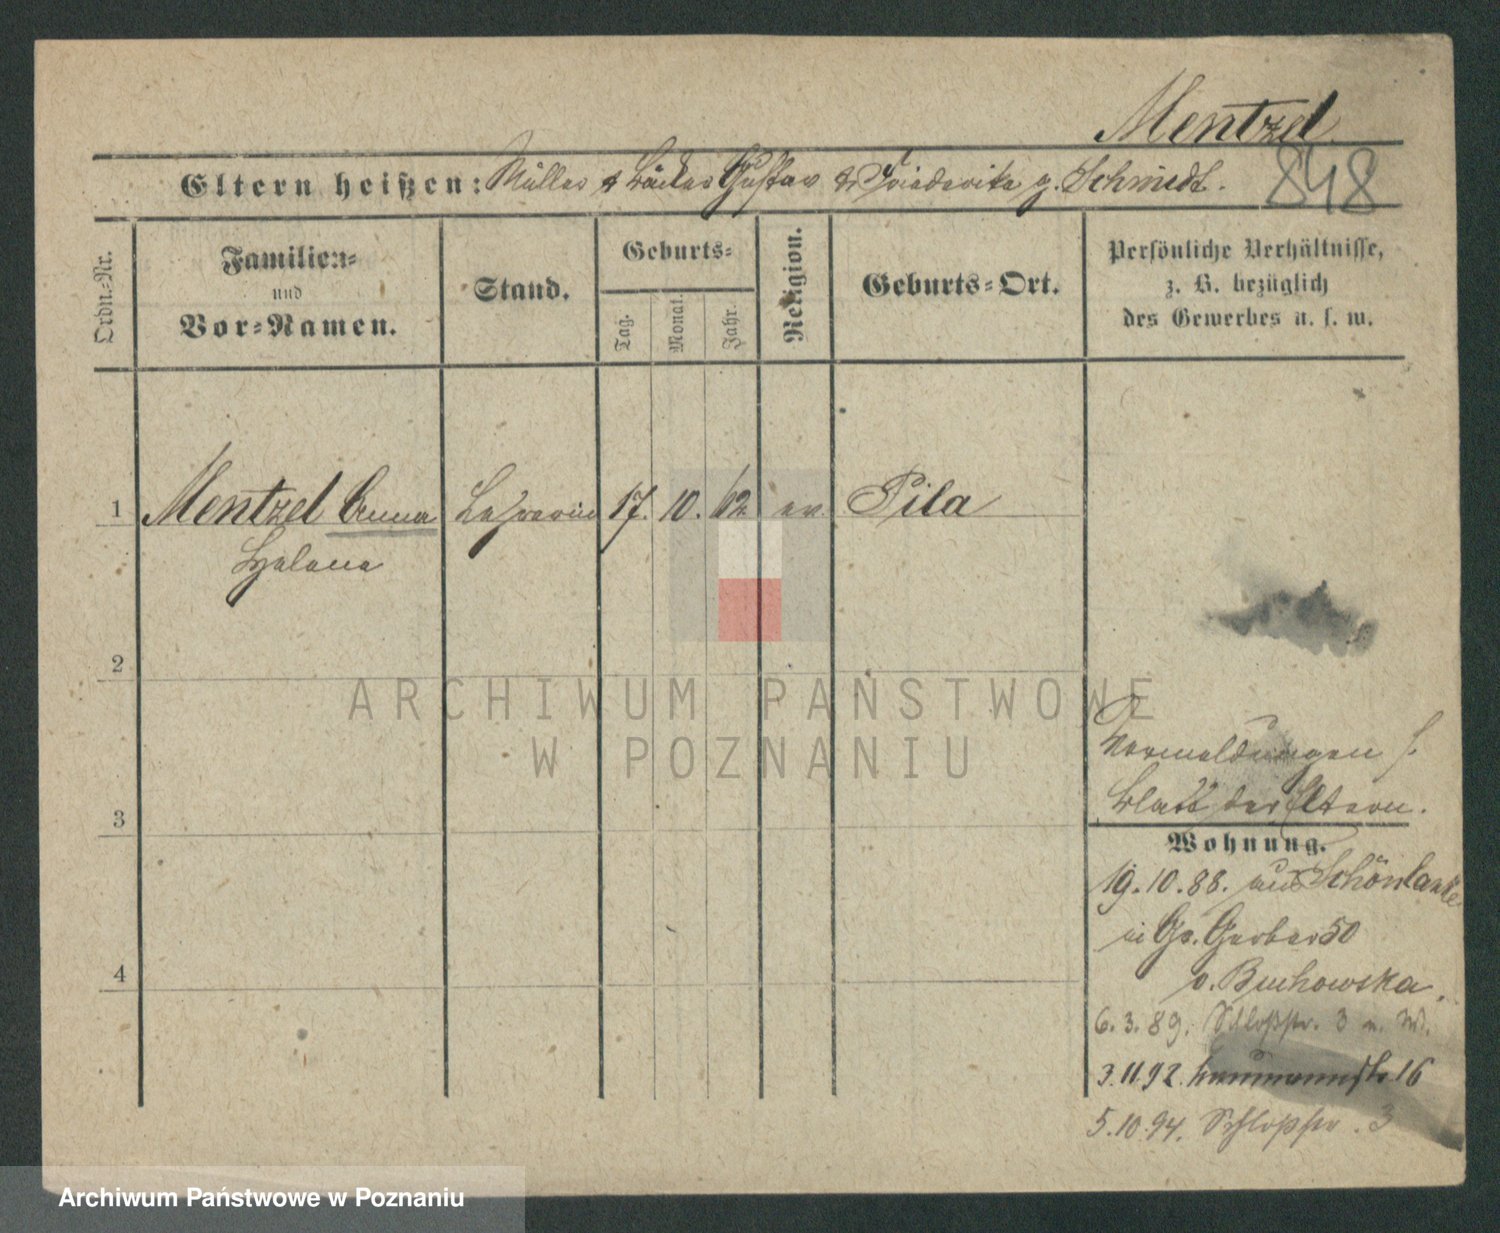 Mentzel
848
Eltern heißen: Müller & Bäcker Gustav & Friederike g. Schmidt.
Ordn.-Nr.
Familien- und Vor-Namen.
Stand.
Geburts-
Tag.
Monat.
Jahr.
Religion.
Geburts-Ort.
Persönliche Verhältnisse,
z. B. bezüglich
des Gewerbes u. s. w.
1 Mentzel Anna Lehrerin 17. 10. 62 ev. Pila
Helene
2
ARCHIWUM PAŃSTWOWE
W POZNANIU
Vermeldungen s.
Blatt der Eltern.
3
Wohnung.
19.10.88. aus Schönlanke
in Gr. Gerber 50
b. Buchowska.
4
6.3.89. Schloßstr. 3 n. W.
3.11.92. Naumannstr. 16
5.10.94. Schloßstr. 3
Archiwum Państwowe w Poznaniu